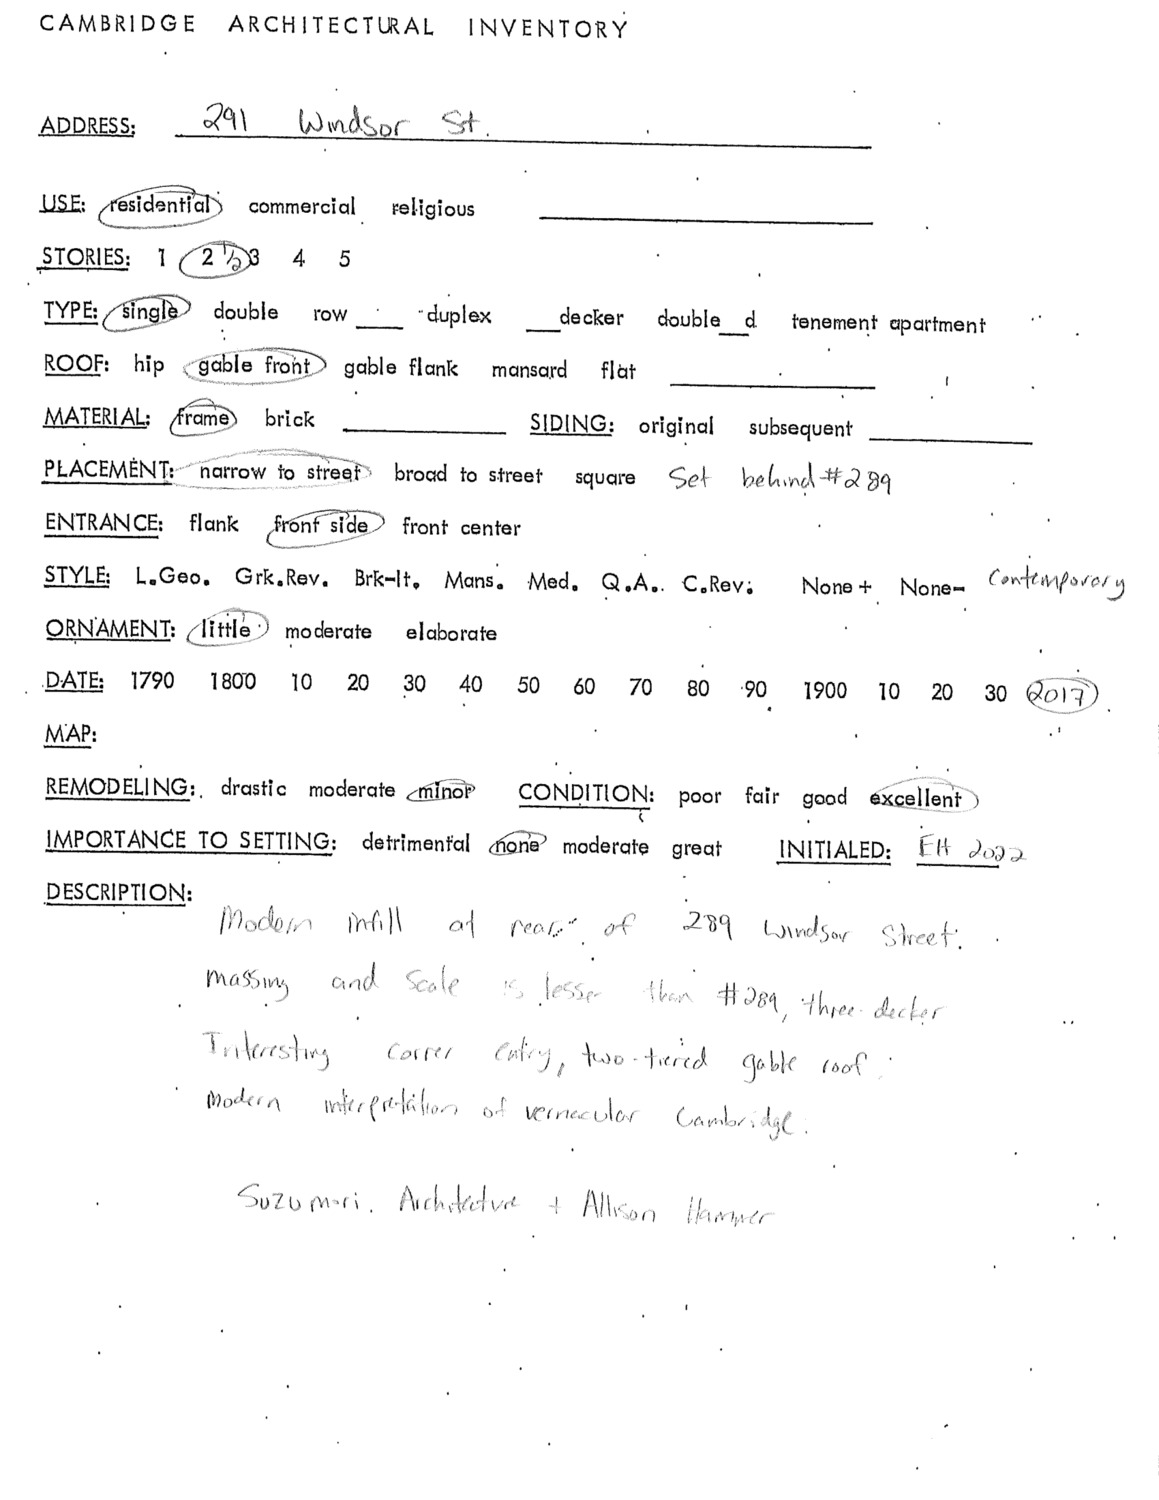 CAMBRIDGE ARCHITECTURAL INVENTORY
ADDRESS: 291 Windsor St.
USE: residential commercial religious
STORIES: 1 2 1/2 3 4 5
TYPE: single double row ___ duplex ___decker double__d tenement apartment
ROOF: hip gable front gable flank mansard flat
MATERIAL: frame brick ___ SIDING: original subsequent ___
PLACEMENT: narrow to street broad to street square Set behind #289
ENTRANCE: flank front side front center
STYLE: L.Geo. Grk.Rev. Brk-It. Mans. Med. Q.A. C.Rev. None+ None- Contemporary
ORNAMENT: little moderate elaborate
DATE: 1790 1800 10 20 30 40 50 60 70 80 90 1900 10 20 30 2017
MAP:
REMODELING: drastic moderate minor CONDITION: poor fair good excellent
IMPORTANCE TO SETTING: detrimental none moderate great INITIALED: EH 2022
DESCRIPTION:
Modern infill at rear of 289 Windsor Street.
Massing and scale is lesser than #289, three-decker
Interesting corner entry, two-tiered gable roof.
Modern interpretation of vernacular Cambridge.
Suzumori Architecture + Allison Hammer